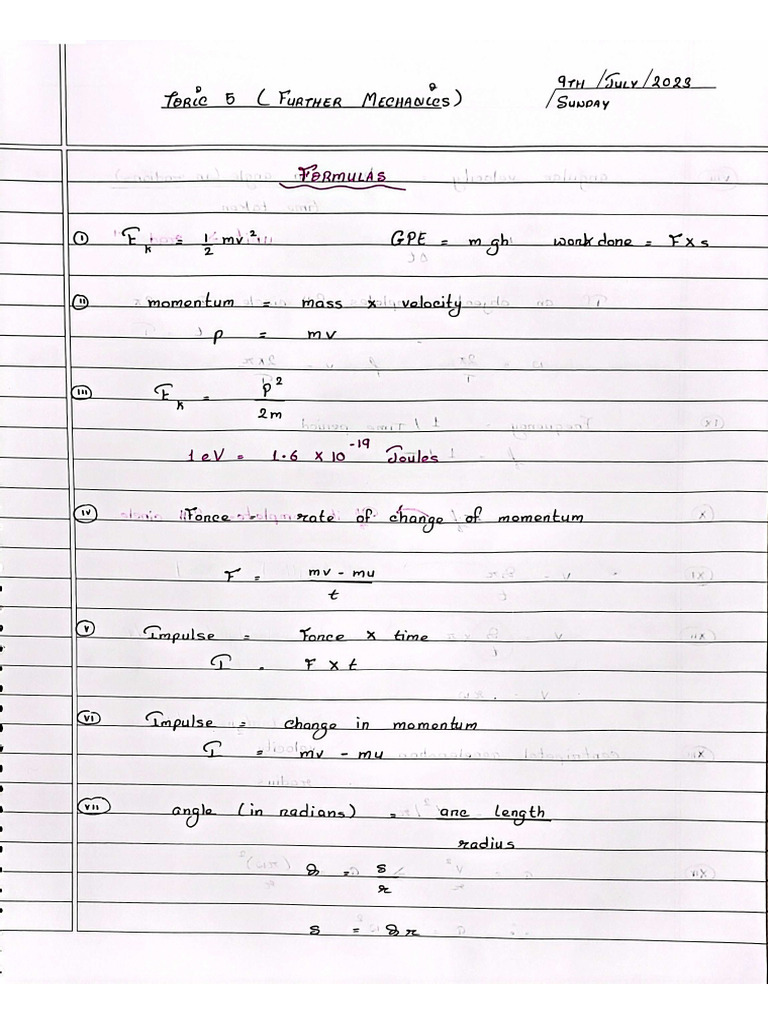 9TH / JULY / 2023
TOPIC 5 ( FURTHER MECHANICS)
/ SUNDAY
FORMULAS
(i) Eₖ = 1/2 mv² GPE = mgh work done = F x s
(ii) momentum = mass x velocity
p = mv
(iii) Eₖ = p²/2m
1 eV = 1.6 x 10⁻¹⁹ Joules
(iv) Force = rate of change of momentum
F = mv - mu / t
(v) Impulse = Force x time
I = F x t
(vi) Impulse = change in momentum
I = mv - mu
(vii) angle (in radians) = arc length
radius
θ = s/r
s = θr